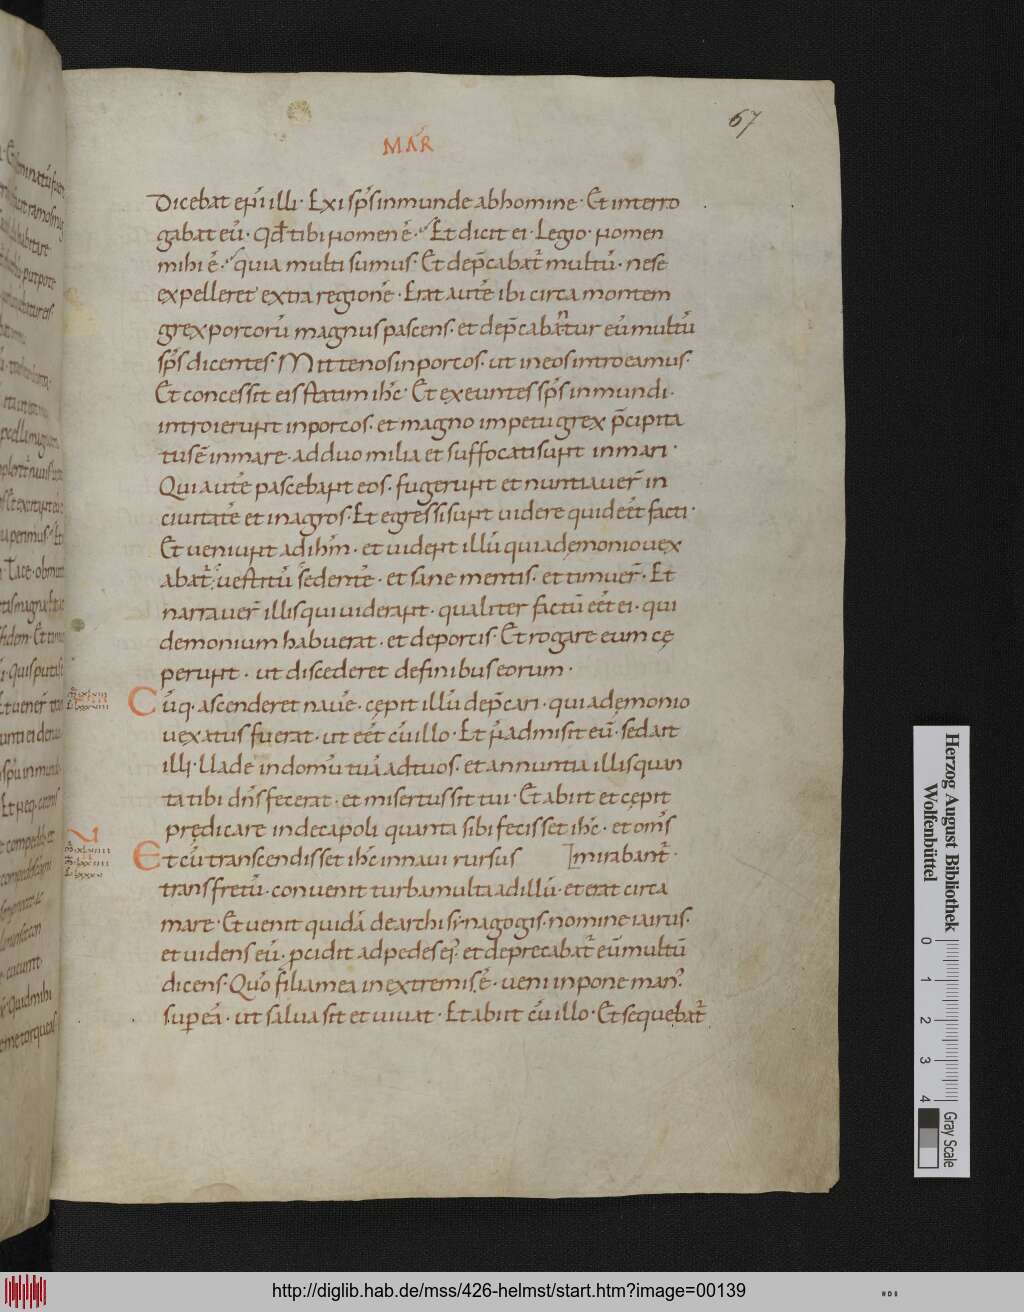 67
MAR
Dicebat eni᷒ illi · Exi sp̄s inmunde ab homine · Et interro
gabat eū · Qd̄ tibi nomen ē · Et dicit ei · Legio · nomen
mihi ē · quia multi sumus · Et dep̄cabat̄ multū · ne se
expelleret extra regionē · Erat autē ibi circa montem
grex porcorū magnus pascens · et dep̄cabant̄ur eū multū
sp̄s dicentes · Mitte nos in porcos · ut in eos introeamus ·
Et concessit eis statim ihc̄ · Et exeuntes sp̄s inmundi ·
introierunt in porcos · et magno impetu grex p̄cipita
tus ē in mare · ad duo milia et suffocati sunt in mari ·
Qui autē pascebant eos · fugerunt et nuntiauer̄ in
ciuitatē et in agros · Et egressi sunt uidere quid eēt facti ·
Et ueniunt ad ihm̄ · et uident illū qui a demonio uex
abat̄ · uestitū sedentē · et sane mentis · et timuer̄ · Et
narrauer̄ illis qui uiderant · qualiter factū eēt ei · qui
demonium habuerat · et de porcis · Et rogare eum cę
perunt · ut discederet de finibus eorum ·
Cūq · ascenderet nauē · cępit illū dep̄cari · qui a demonio
uexatus fuerat · ut eēt cū illo · Et n̄ admisit eū · sed ait
illi · Uade in domū tuā ad tuos · et annuntia illis quan
ta tibi dn̄s fecerat · et misertus sit tui · Et abiit et cępit
prędicare in decapoli quanta sibi fecisset ihc̄ · et om̄s
Et cū transcendisset ihc̄ in naui rursus mirabant̄ ·
transfretū · conuenit turba multa ad illū · et erat circa
mare · Et uenit quidā de archisynagogis · nomine iairus ·
et uidens eū · pcidit ad pedes eꝰ · et deprecabat̄ eū multū
dicens · Quō filia mea in extremis ē · ueni inpone manꝰ
super eā · ut salua sit et uiuat · Et abiit cū illo · Et sequebat̄
Herzog August Bibliothek
Wolfenbüttel
0 1 2 3 4
Gray Scale
http://diglib.hab.de/mss/426-helmst/start.htm?image=00139